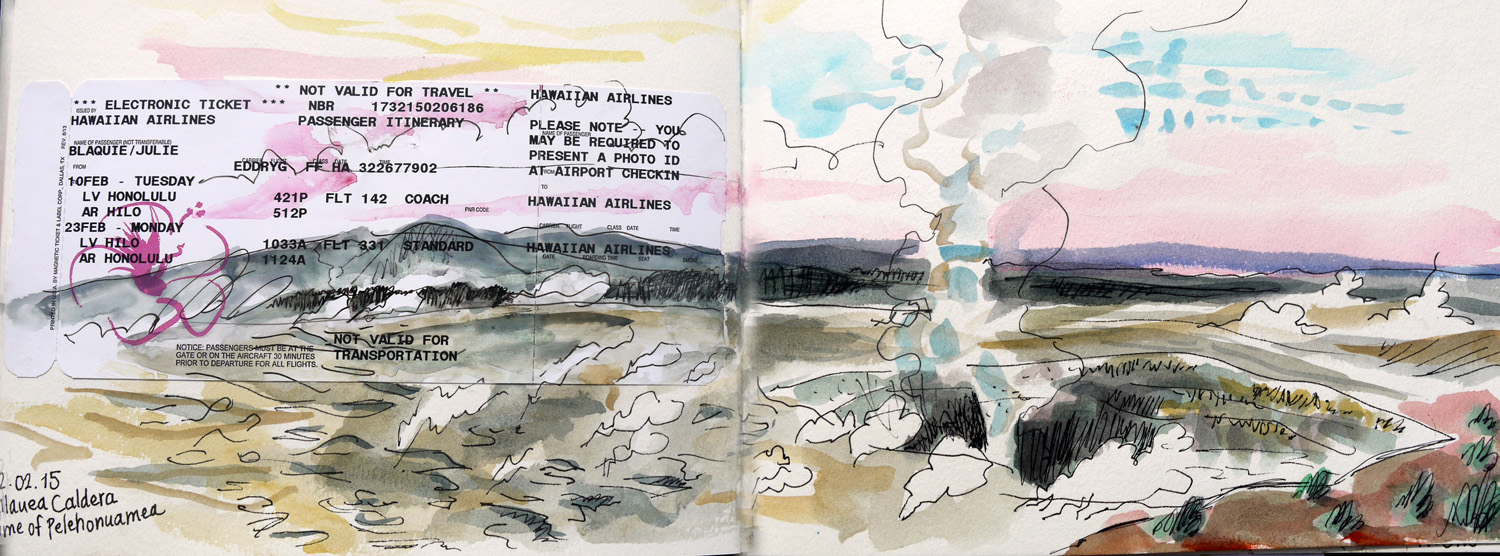 ** NOT VALID FOR TRAVEL **
*** ELECTRONIC TICKET ***
NBR 1732150206186
HAWAIIAN AIRLINES
ISSUED BY
HAWAIIAN AIRLINES
PASSENGER ITINERARY
PLEASE NOTE - YOU
NAME OF PASSENGER
MAY BE REQUIRED TO
PRESENT A PHOTO ID
AT AIRPORT CHECKIN
NAME OF PASSENGER (NOT TRANSFERABLE)
BLAQUIE/JULIE
FROM
CARRIER FLIGHT CLASS DATE TIME
EDDRYG FF HA 322677902
FROM
10FEB - TUESDAY
LV HONOLULU 421P FLT 142 COACH
AR HILO 512P
PNR CODE
TO
HAWAIIAN AIRLINES
23FEB - MONDAY
LV HILO 1033A FLT 331 STANDARD
AR HONOLULU 1124A
CARRIER FLIGHT CLASS DATE TIME
HAWAIIAN AIRLINES
GATE BOARDING TIME SEAT SMOKE
NOT VALID FOR
TRANSPORTATION
NOTICE: PASSENGERS MUST BE AT THE
GATE OR ON THE AIRCRAFT 30 MINUTES
PRIOR TO DEPARTURE FOR ALL FLIGHTS.
PRINTED IN U.S.A. BY MAGNETIC TICKET & LABEL CORP., DALLAS, TX REV. 8/13
2.02.15
ilauea Caldera
me of Pelehonuamea